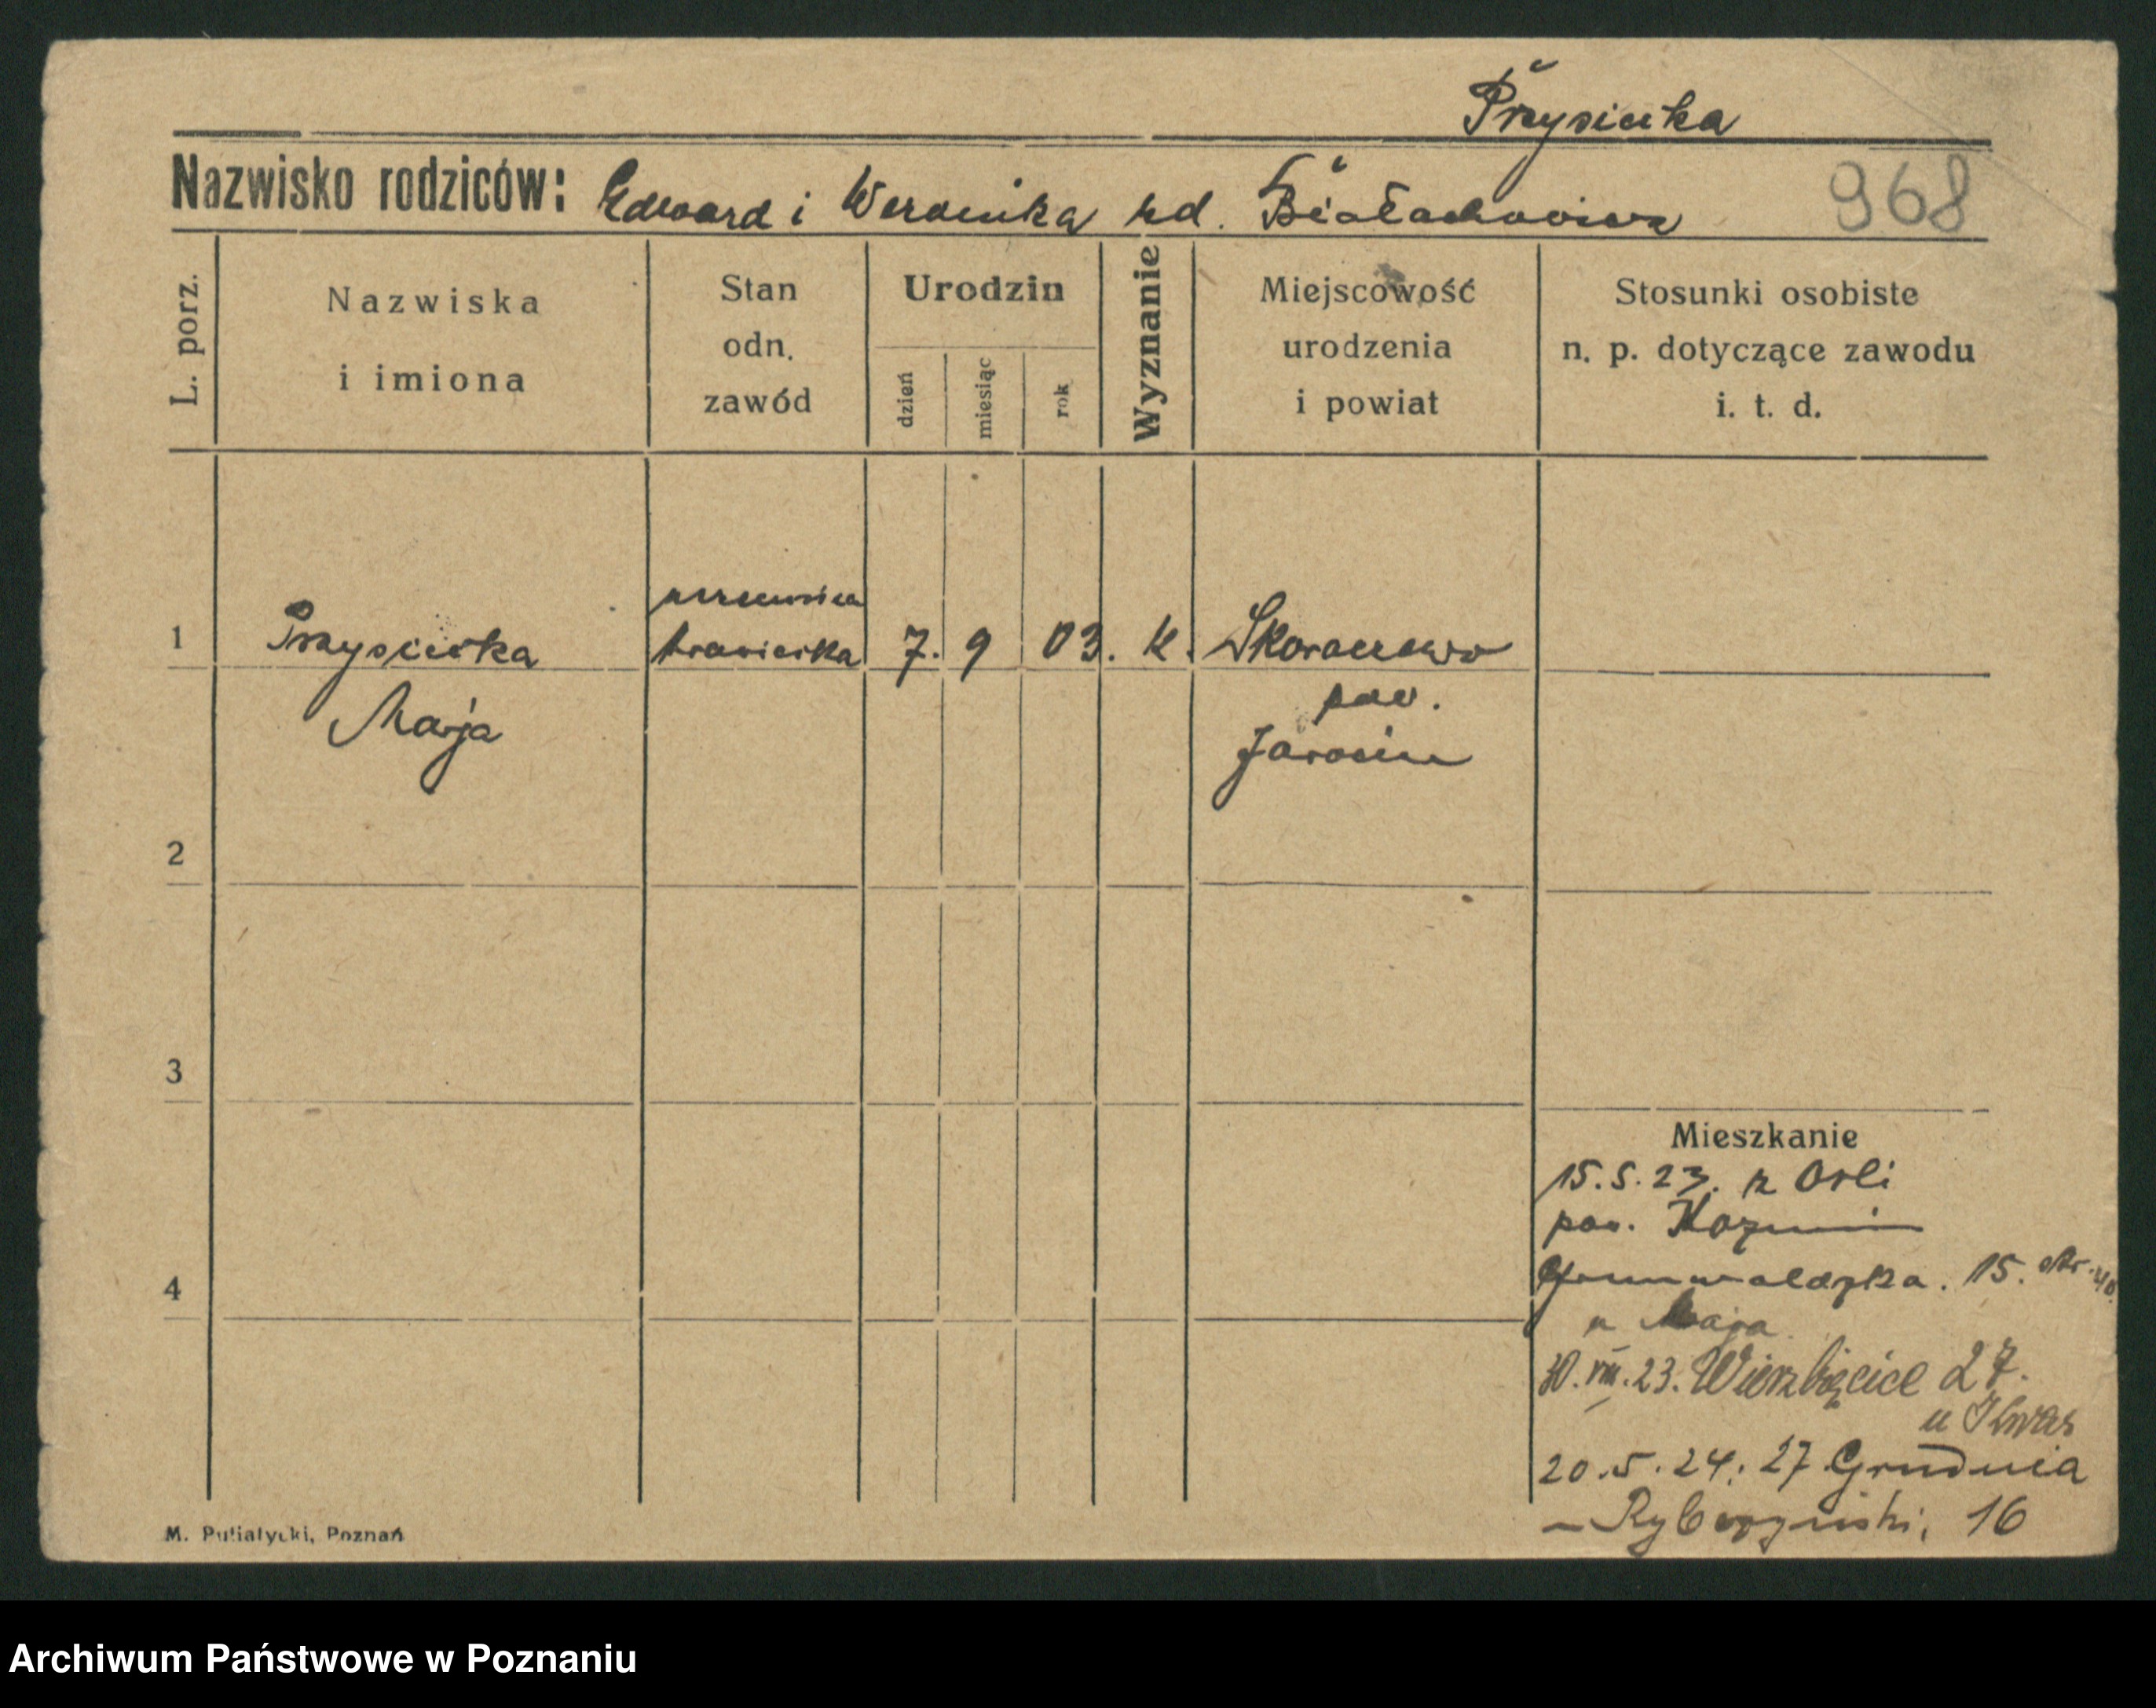 Przysiecka
Nazwisko rodziców: Edward i Weronika zd. Białachowicz
968
L. porz.
Nazwiska
i imiona
Stan
odn.
zawód
Urodzin
dzień
miesiąc
rok
Wyznanie
Miejscowość
urodzenia
i powiat
Stosunki osobiste
n. p. dotyczące zawodu
i. t. d.
uczennica
1 Przysiecka krawiecka 7. 9 03. k.
Marja
pow.
Jarocin
2
3
4
Mieszkanie
15.5.23. z Orli
pow. Kozmin
Grunwaldzka. 15.
u Maja
VIII.23. Wierzbięcice 27.
u
20.5.24. 27 Grudnia
16
M. Putiatycki, Poznań
Archiwum Państwowe w Poznaniu